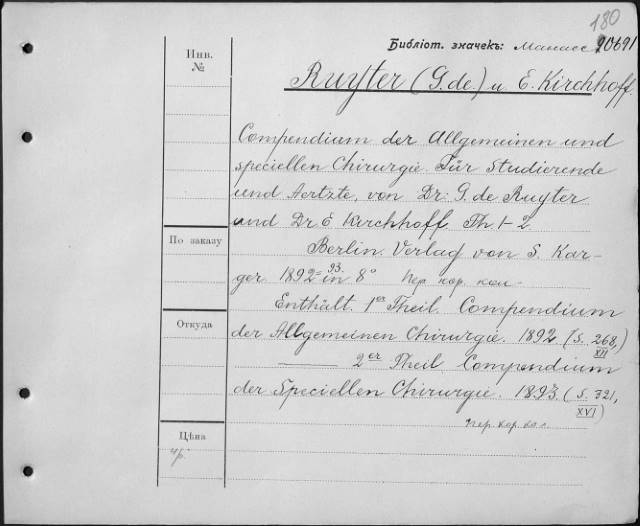 180
Библіот. значекъ: Манассе 90691
Инв.
№
Ruyter (G. de) и E. Kirchhoff.
Compendium der Allgemeinen und
speciellen Chirurgie. Für Studierende
und Aertzte, von Dr. G. de Ruyter
und Dr. E Kirchhoff. Th. 1-2.
По заказу
Berlin. Verlag von S. Kar-
ger 1892=93. in 8° пер. кор. кол.
Enthält. 1er Theil. Compendium
Откуда
der Allgemeinen Chirurgie. 1892. (S. 268,
XII
2er Theil Compendium
der Speciellen Chirurgie. 1893. (S. 321,
XVI)
пер. кор. кол.
Цѣна